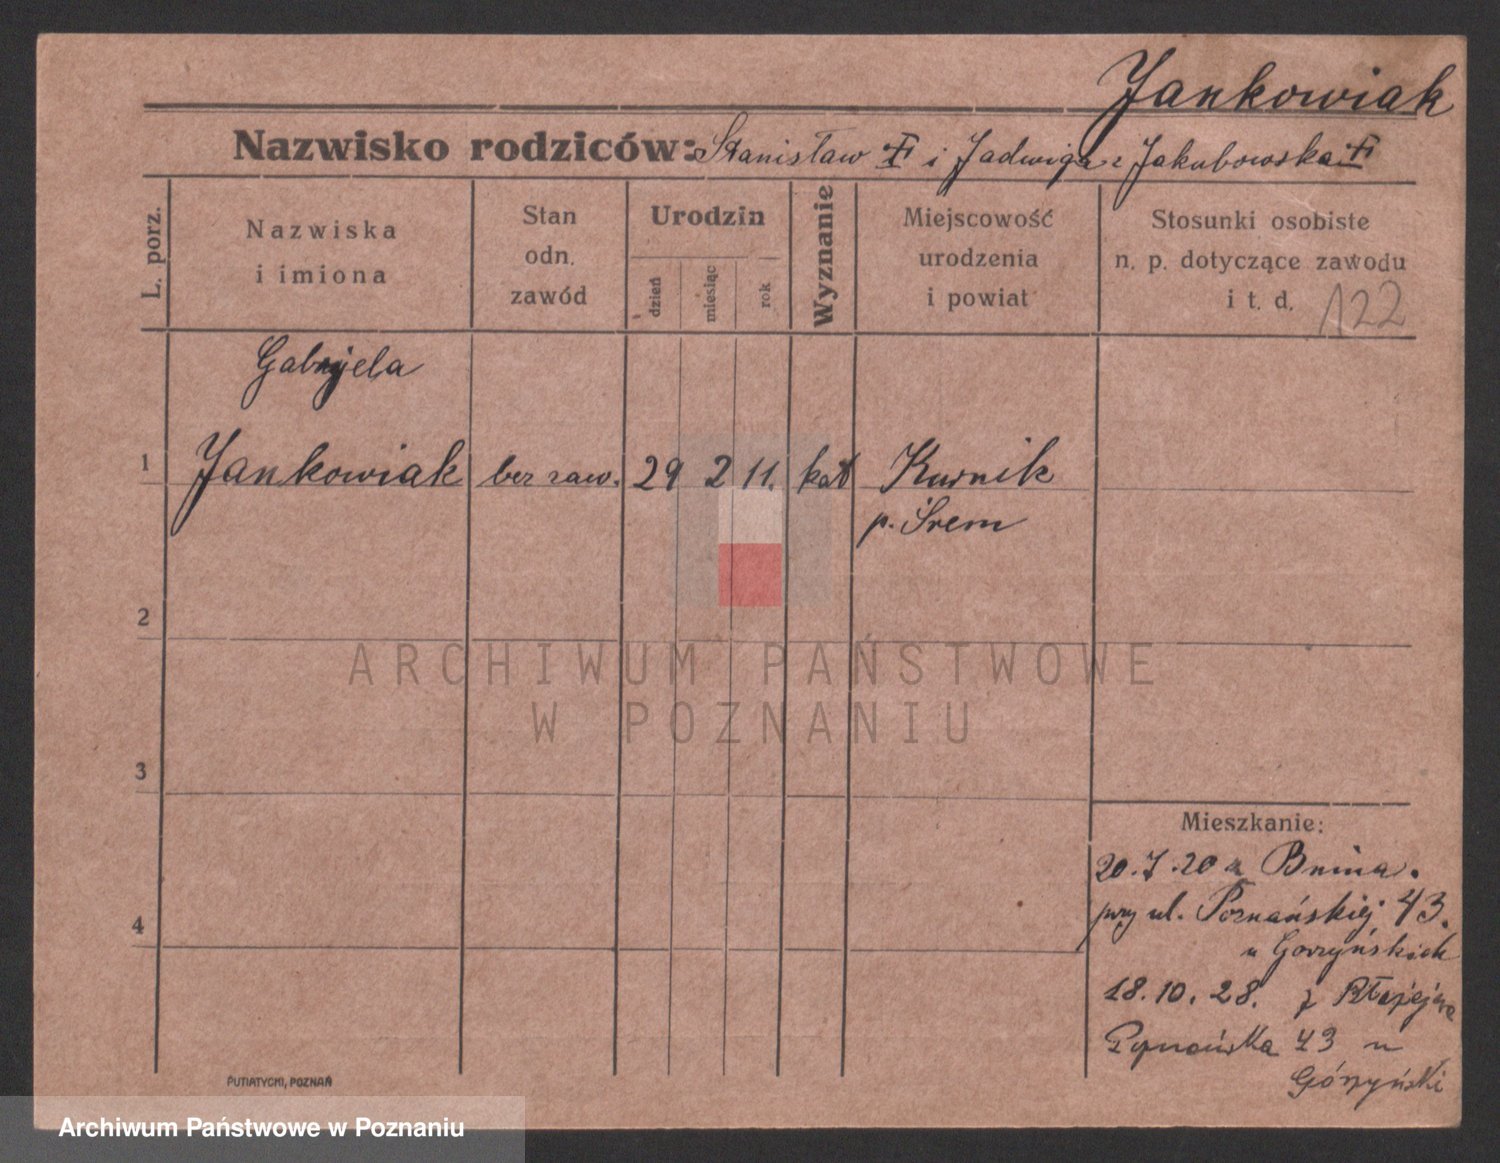 Jankowiak
Nazwisko rodziców: Stanisław i Jadwiga z Jakubowska
L. porz.
Nazwiska
i imiona
Stan
odn.
zawód
Urodzin
dzień
miesiąc
rok
Wyznanie
Miejscowość
urodzenia
i powiat
Stosunki osobiste
n. p. dotyczące zawodu
i t. d.
122
Gabryjela
1 Jankowiak bez zaw. 29 2 11. kat Kurnik
p. Śrem
2
3
4
Mieszkanie:
20.7.20 z Bnina.
przy ul. Poznańskiej 43.
u Gorzyńskich
18.10.28. z
Poznańska 43 u
Górzyński
PUTIATYCKI, POZNAŃ
ARCHIWUM PAŃSTWOWE
W POZNANIU
Archiwum Państwowe w Poznaniu